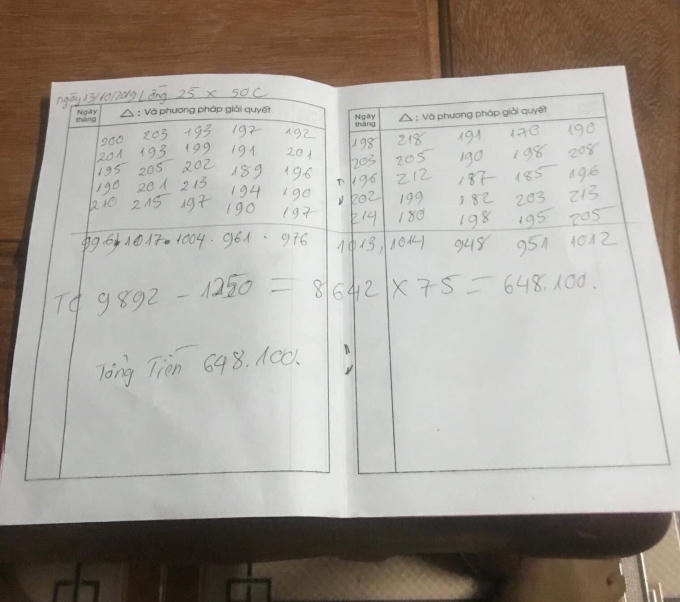 Ngày 13/10/2019 Lồng 25 x 50C
Ngày tháng
△ : Và phương pháp giải quyết
200 203 193 197 192
201 193 199 191 201
195 205 202 189 196
190 201 213 194 190
210 215 197 190 197
996) 1017 • 1004 • 961 • 976
Ngày tháng
△ : Và phương pháp giải quyết
198 218 191 170 190
203 205 190 198 208
196 212 187 185 196
202 199 182 203 213
214 180 198 195 205
1013, 1014 948 951 1012
TC 9892 - 1250 = 8642 x 75 = 648.100.
Tổng Tiền 648.100.